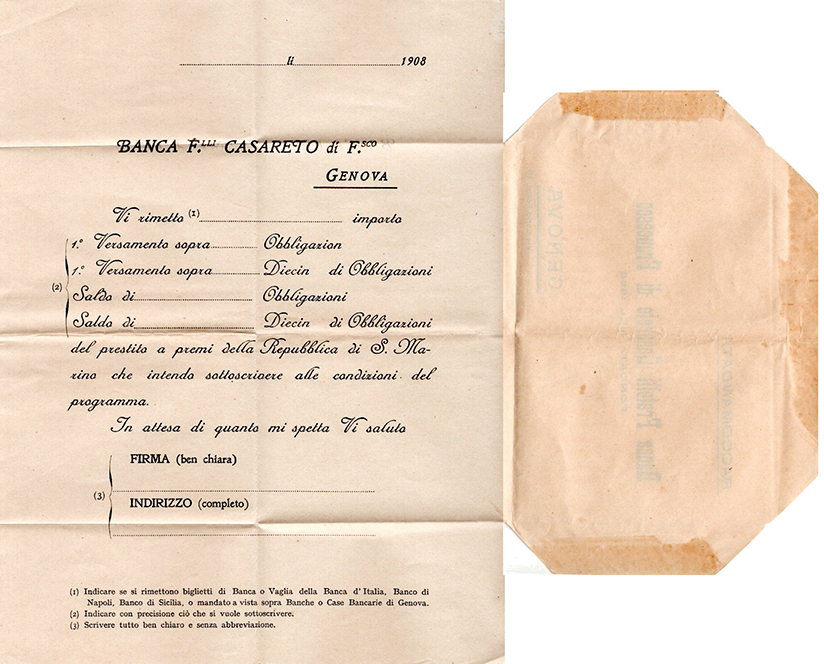 li 1908
BANCA F.LLI CASARETO di F.SCO
GENOVA
Vi rimetto (1) importo
1.° Versamento sopra Obbligazion
1.° Versamento sopra Diecin di Obbligazioni
(2)
Saldo di Obbligazioni
Saldo di Diecin di Obbligazioni
del prestito a premi della Repubblica di S. Ma-
rino che intendo sottoscrivere alle condizioni del
programma.
In attesa di quanto mi spetta Vi saluto
FIRMA (ben chiara)
(3)
INDIRIZZO (completo)
(1) Indicare se si rimettono biglietti di Banca o Vaglia della Banca d'Italia, Banco di
Napoli, Banco di Sicilia, o mandato a vista sopra Banche o Case Bancarie di Genova.
(2) Indicare con precisione ciò che si vuole sottoscrivere.
(3) Scrivere tutto ben chiaro e senza abbreviazione.
GENOVA
Fratelli Casareto di Francesco